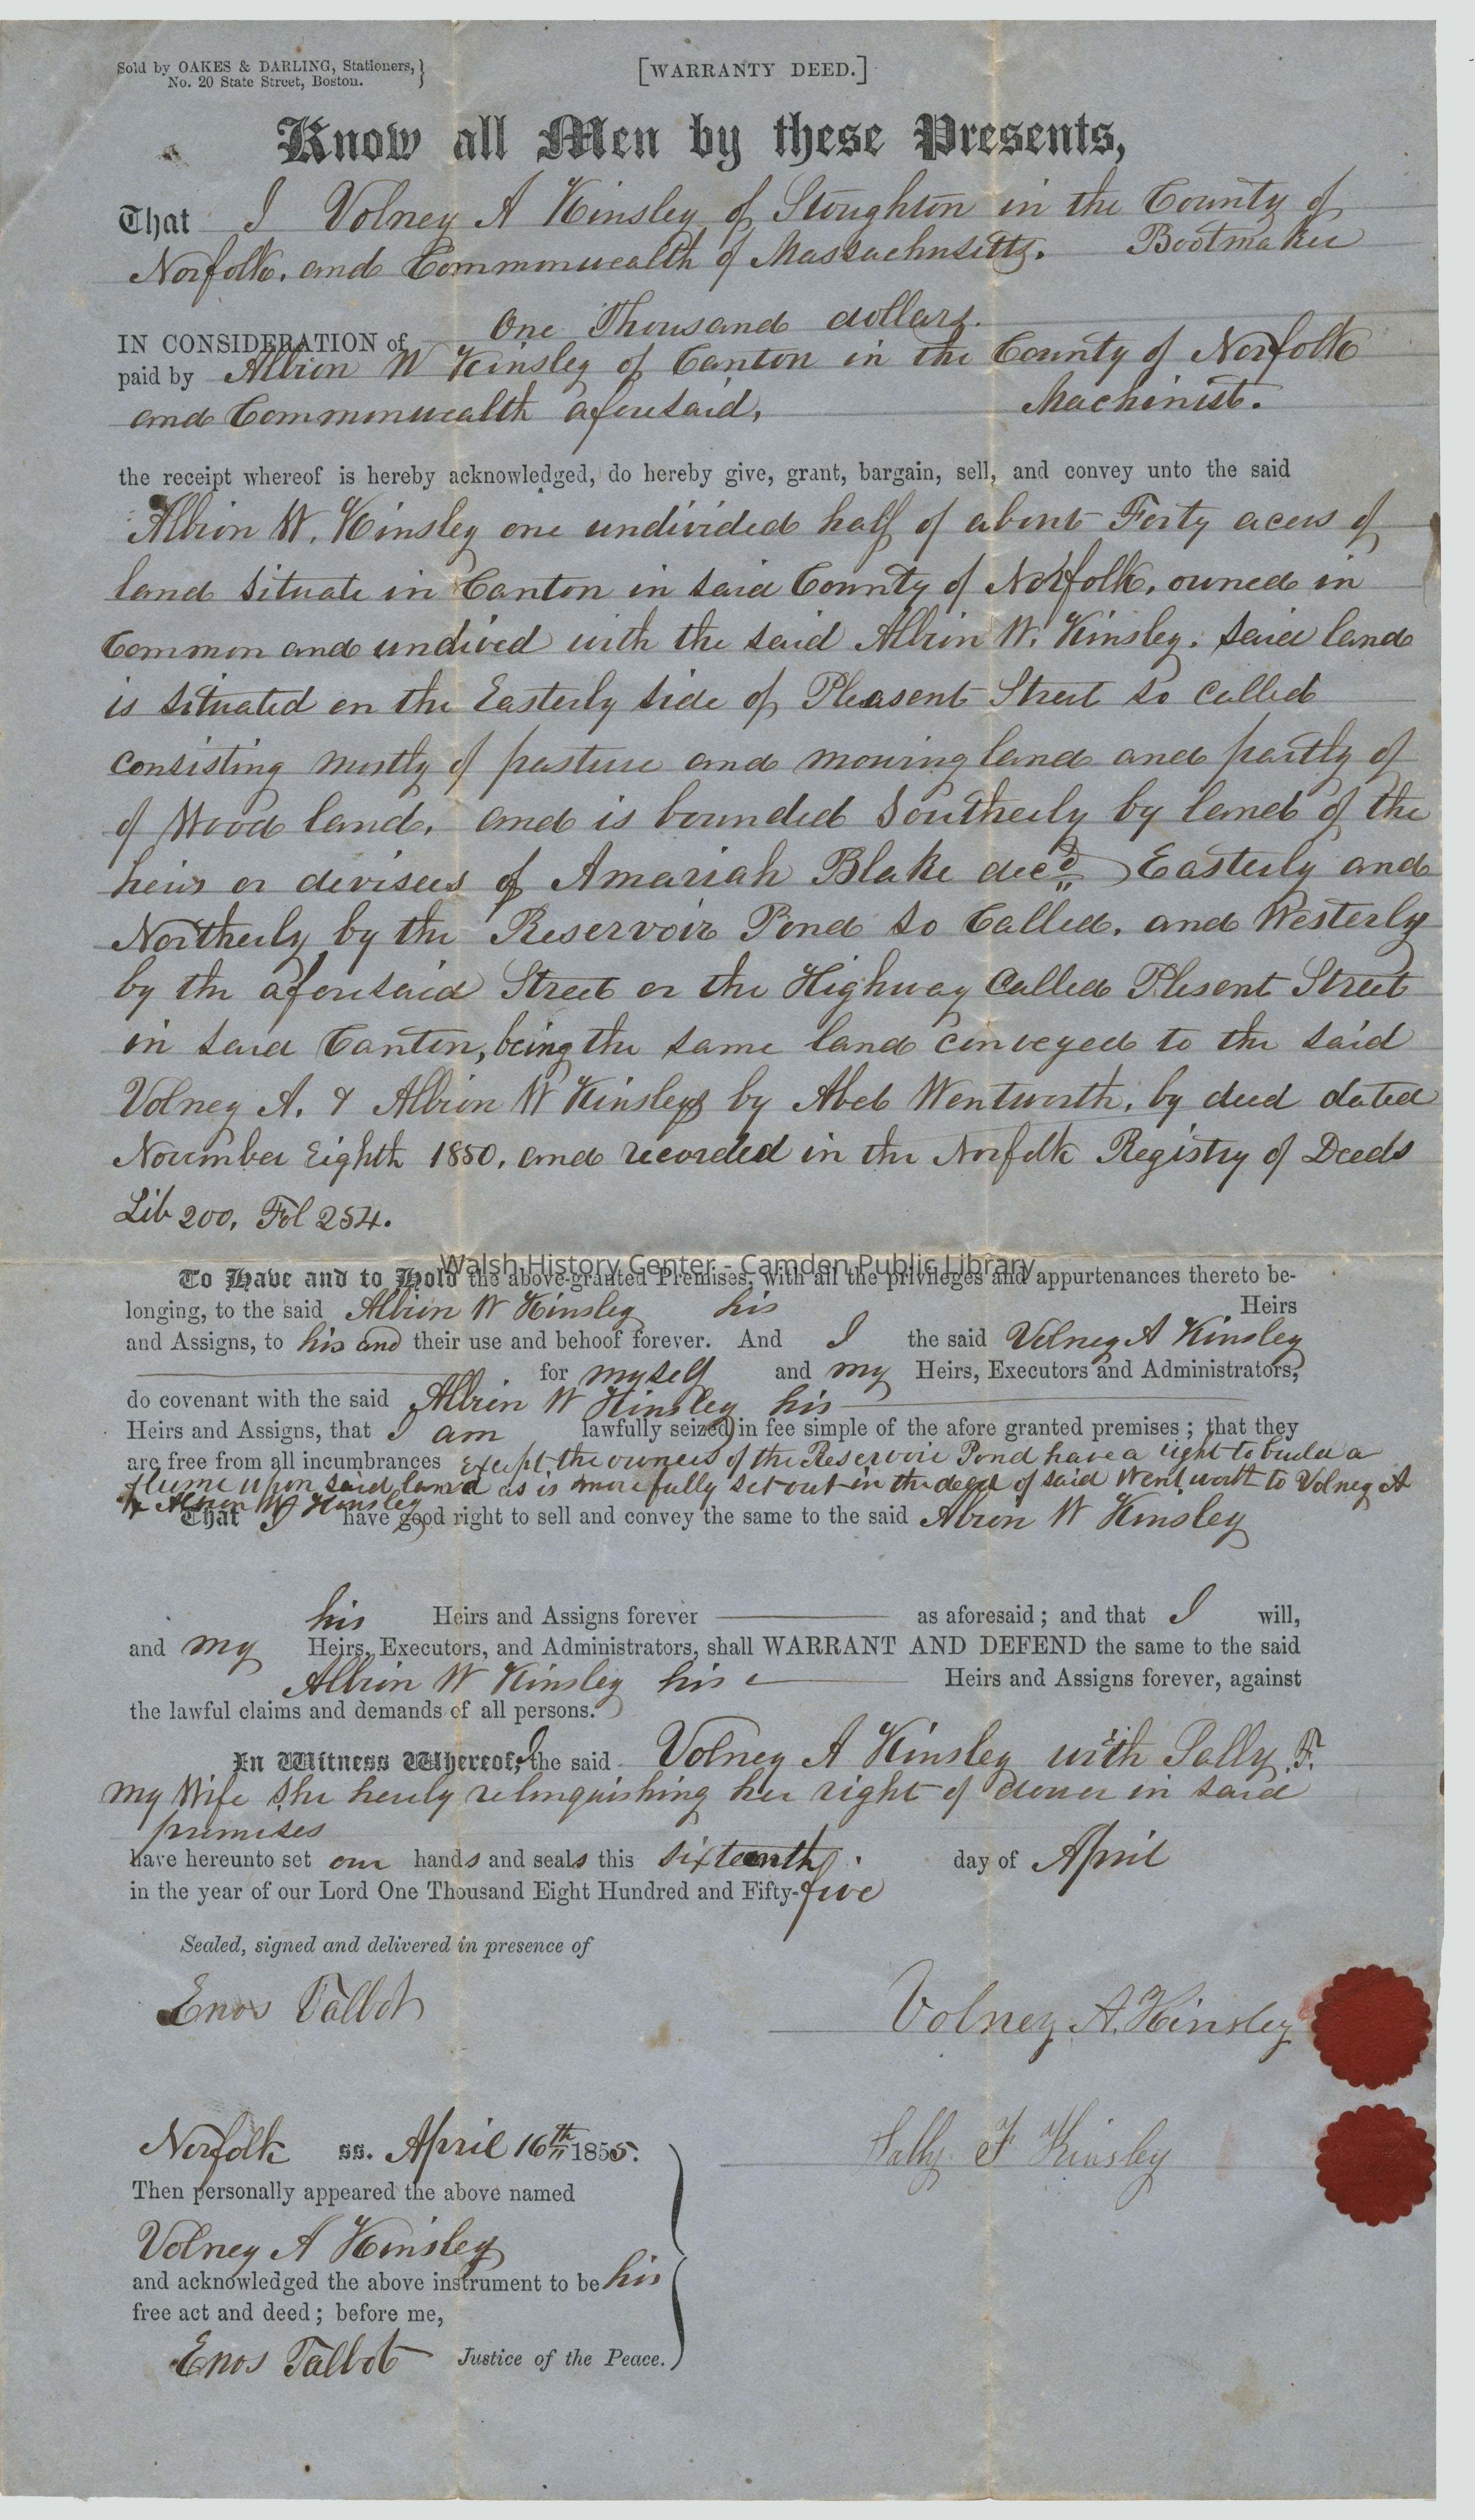 Sold by OAKES & DARLING, Stationers,
No. 20 State Street, Boston.
[WARRANTY DEED.]
Know all Men by these Presents,
That I Volney A Kinsley of Stoughton in the County of
Norfolk. and Commonwealth of Massachusetts. Bootmaker
One Thousand dollars.
IN CONSIDERATION of
paid by Albion W Kinsley of Canton in the County of Norfolk
and Commonwealth aforesaid, Machinist.
the receipt whereof is hereby acknowledged, do hereby give, grant, bargain, sell, and convey unto the said
Albion W. Kinsley one undivided half of about Forty acers of
land situate in Canton in said County of Norfolk, owned in
Common and undived with the said Albion W. Kinsley. said land
is situated on the Easterly side of Pleasent Street so called
consisting mostly of pasture and mowing land and partly of
of Wood land. and is bounded Southerly by land of the
heirs or devisees of Amariah Blake decd Easterly and
Northerly by the Reservoir Pond so Called. and Westerly
by the aforesaid Street or the Highway Called Plesent Street
in said Canton, being the same land conveyed to the said
Volney A. & Albion W Kinsleys by Abel Wentworth. by deed dated
November Eighth 1850. and recorded in the Norfolk Registry of Deeds
Lib 200. Fol 254.
Walsh History Center - Camden Public Library
To Have and to Hold the above-granted Premises, with all the privileges and appurtenances thereto be-
longing, to the said Albion W Kinsley his Heirs
and Assigns, to his and their use and behoof forever. And I the said Volney A Kinsley
for myself and my Heirs, Executors and Administrators,
do covenant with the said Albion W Kinsley his
Heirs and Assigns, that I am lawfully seized in fee simple of the afore granted premises; that they
are free from all incumbrances except the owners of the Reservoir Pond have a right to build a
flume upon said land as is more fully set out in the deed of said Wentworth to Volney A
& Albion W Kinsley
That I have good right to sell and convey the same to the said Albion W Kinsley
his Heirs and Assigns forever as aforesaid; and that I will,
and my Heirs, Executors, and Administrators, shall WARRANT AND DEFEND the same to the said
Albion W Kinsley his Heirs and Assigns forever, against
the lawful claims and demands of all persons.
In Witness Whereof, I the said Volney A Kinsley with Sally F.
my Wife she herely relinquishing her right of dower in said
premises
have hereunto set our hands and seals this sixteenth day of April
in the year of our Lord One Thousand Eight Hundred and Fifty-five
Sealed, signed and delivered in presence of
Enos Talbot
Volney A. Kinsley
Sally F Kinsley
Norfolk ss. April 16th 1855.
Then personally appeared the above named
Volney A Kinsley
and acknowledged the above instrument to be his
free act and deed; before me,
Enos Talbot Justice of the Peace.